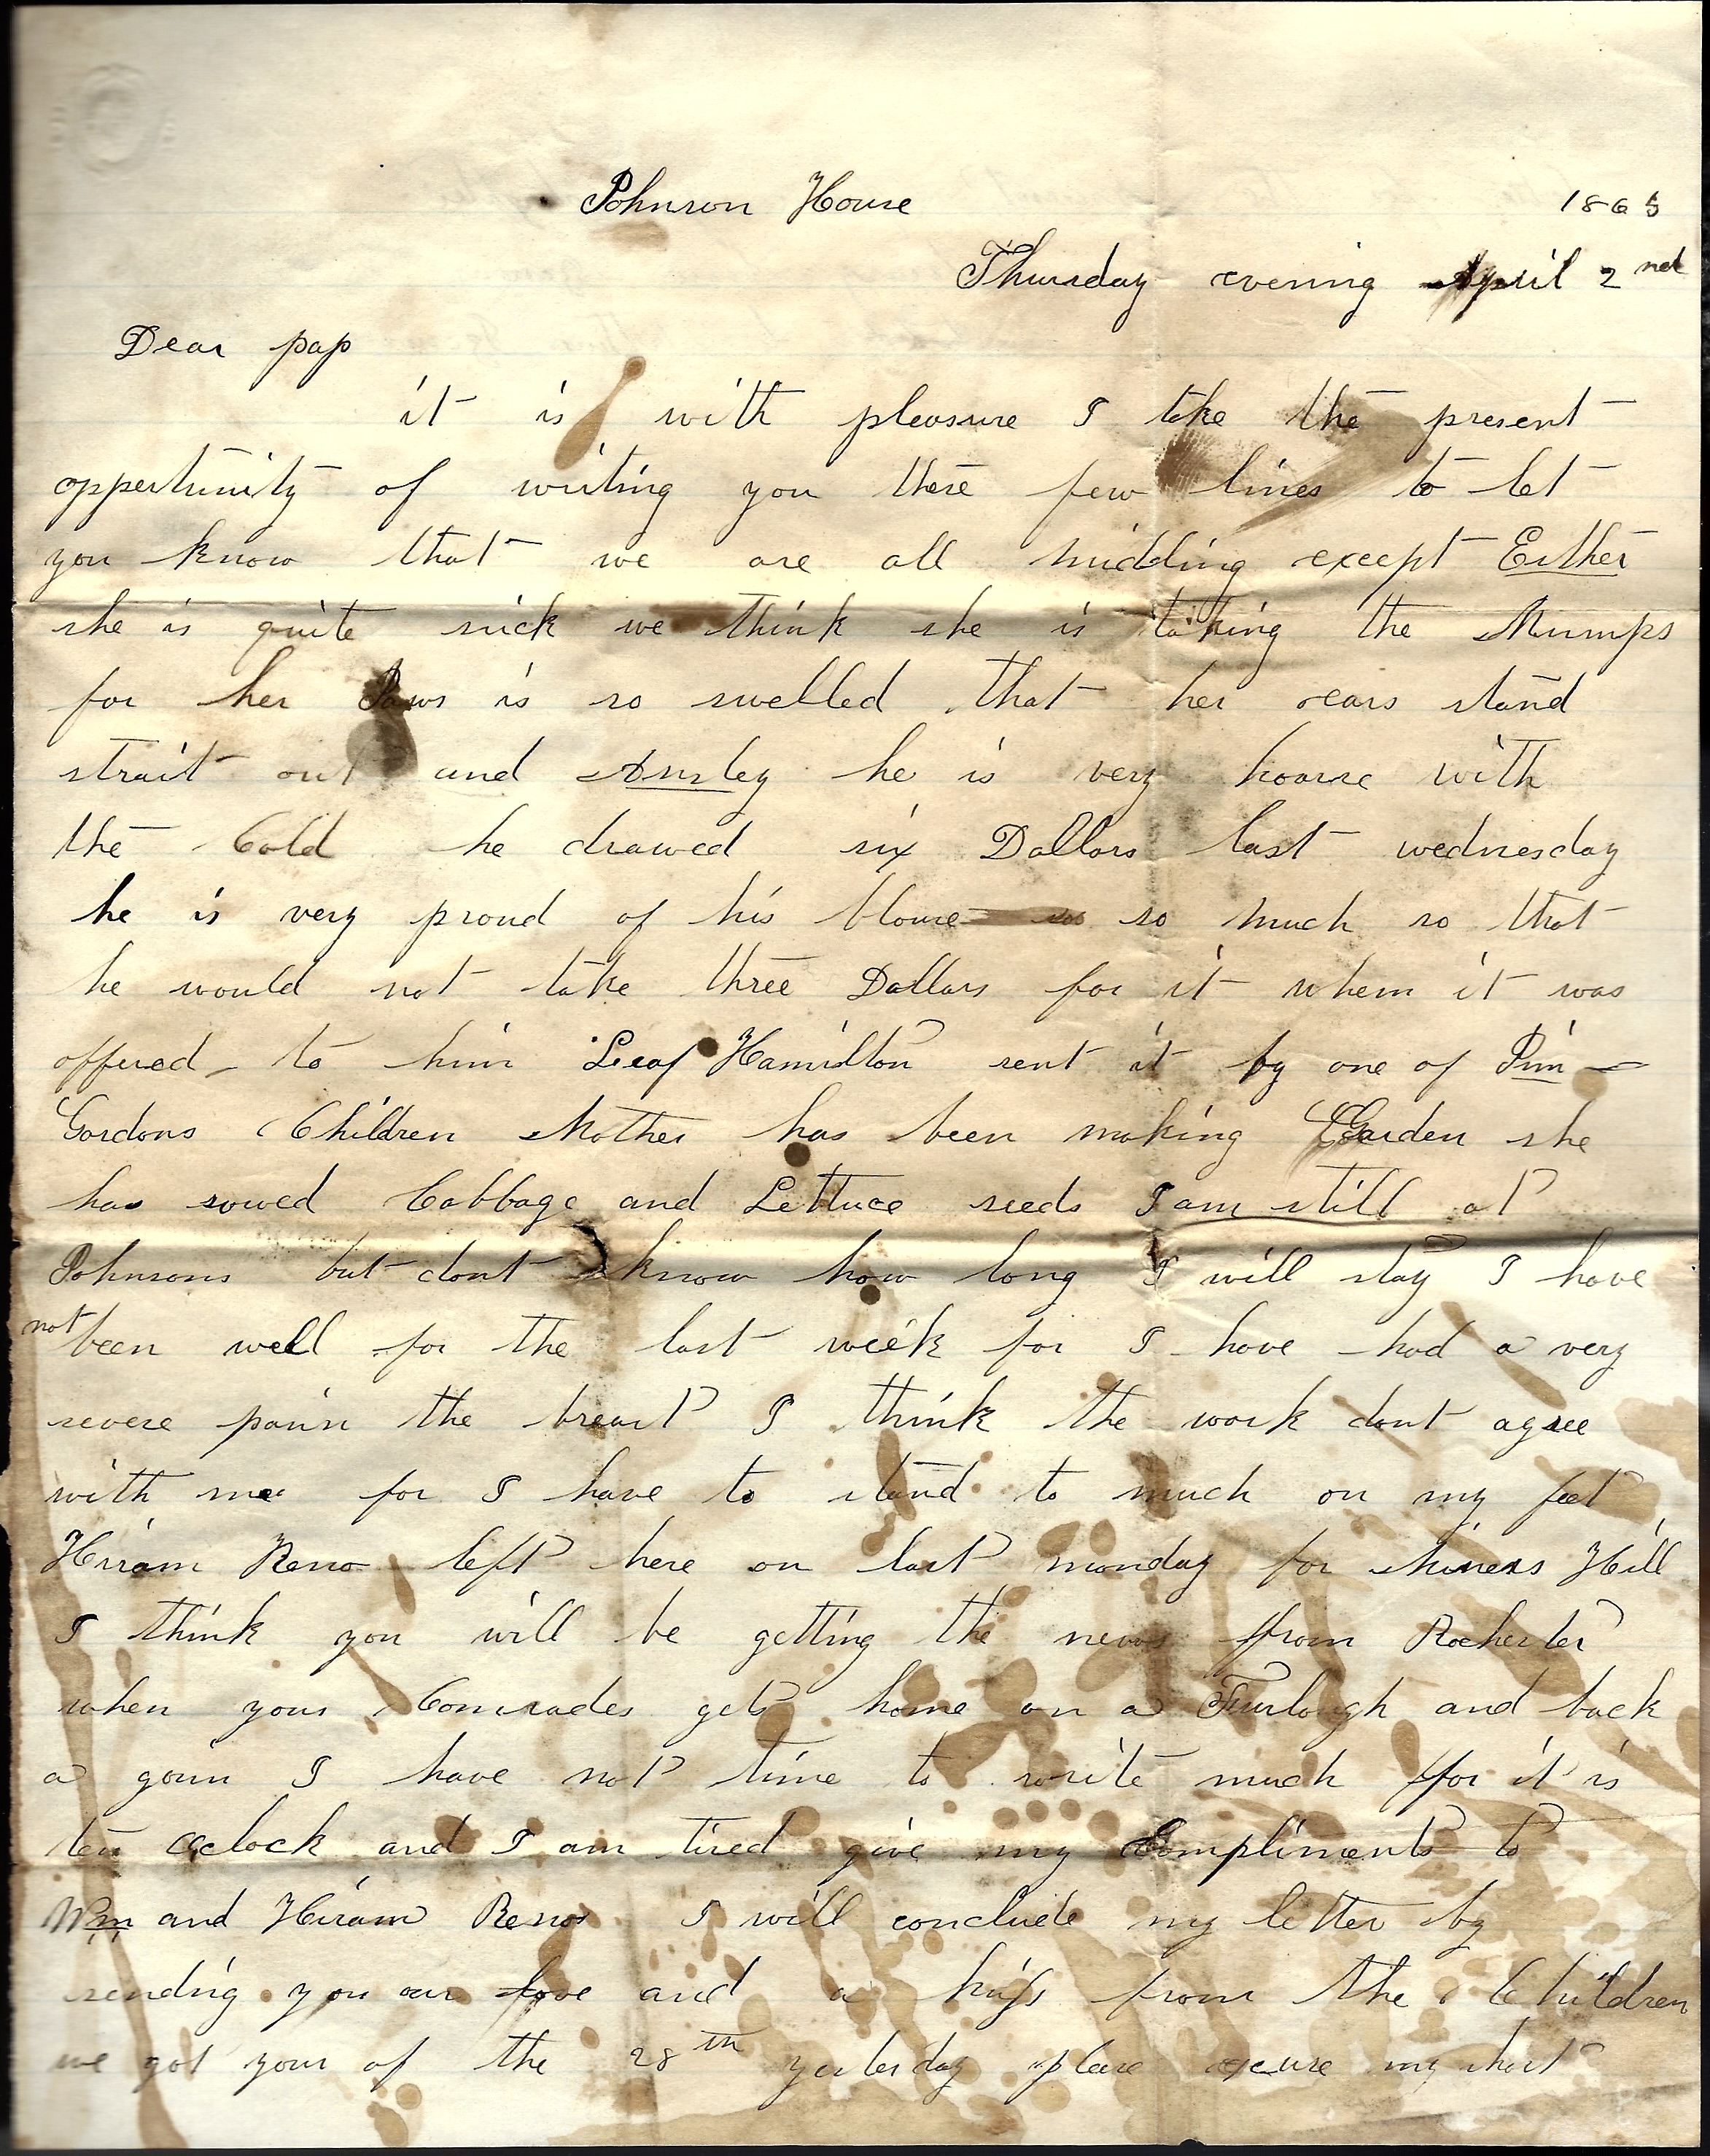 Johnson House
1865
Thursday evening April 2nd
Dear pap
it is with pleasure I take the present
oppertunity of writing you these few lines to let
you know that we are all middling except Esther
she is quite sick we think she is taking the Mumps
for her Jaws is so swelled that her ears stand
strait out and Ansley he is very hoarse with
the Cold he drawed six Dollars last wednesday
he is very proud of his blouse so much so that
he would not take three Dollars for it whem it was
offered to him Hamilton sent it by one of Jim
Gordons Children Mother has been making Garden she
has sowed Cabbage and Lettuce seeds I am still at
Johnsons but dont know how long I will stay I have
not been well for the last week for I have had a very
severe pain the breast I think the work dont agree
with me for I have to stand to much on my feet
Hiram Reno left here on last monday for Miners Hill
I think you will be getting the news from Rochester
when your Comrades gets home on a Furlough and back
a gain I have not time to write much for it is
ten Oclock and I am tired give my Compliments to
Wm and Hiram Reno I will conclude my letter by
sending you our love and a kiss from the Children
we got your of the 28th yesterday please excuse my short